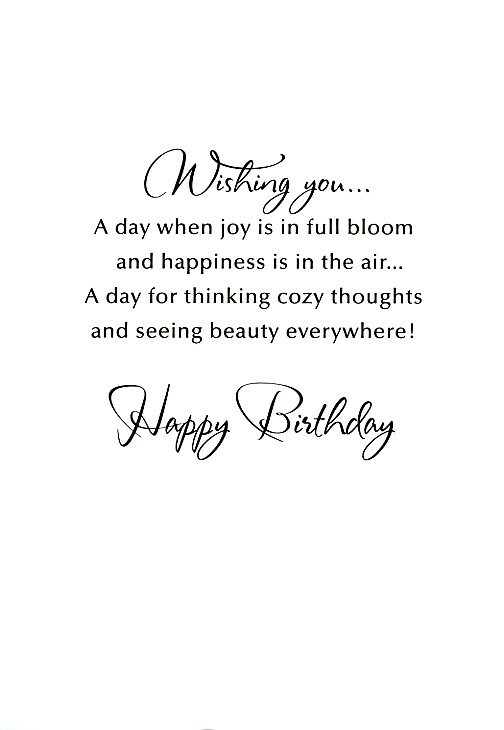 Wishing you...
A day when joy is in full bloom
and happiness is in the air...
A day for thinking cozy thoughts
and seeing beauty everywhere!
Happy Birthday